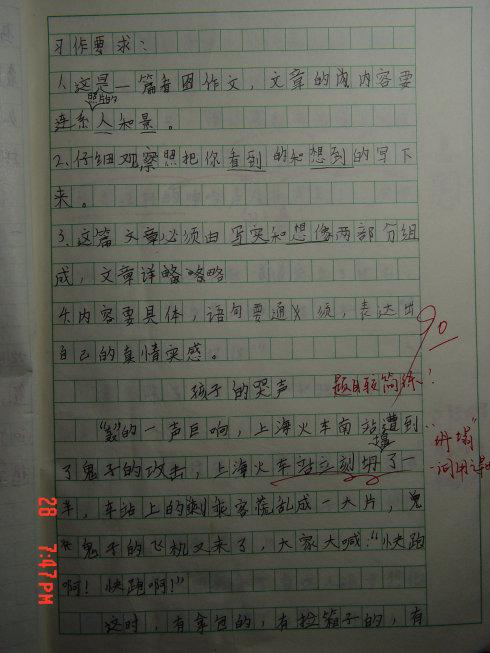 习作要求：
1.这是一篇看图作文，文章的内容要
照片的
连系人和景。
2.仔细观察照把你看到的和想到的写下
来。
3.这篇文章必须由写实和想像两部分组
成，文章详略
4.内容要具体，语句要通顺，表达出
自己的真情实感。
90
孩子的哭声
题目较简练！
"轰"的一声巨响，上海火车南站遭到
了鬼子的攻击，上海火车站立刻坍了一
"坍塌"
半，车站上的乘客荒乱成一大片，鬼
鬼子的飞机又来了，大家大喊："快跑
啊！快跑啊！"
这时，有拿包的，有拉箱子的，有
28 7:47PM